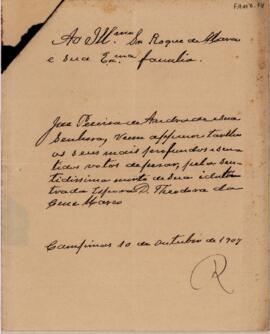 Ao Illmo Sr Roque de Marco
e sua Exma familia.
José Pereira de Andrade e sua
Senhora, vem apresentar
os seus mais profundos e sen
tidos votos de pesar, pela sen
tidissima morte de sua idolatra
da esposa D. Theodora da
Marco
Campinas 10 de outubro de 1907
R